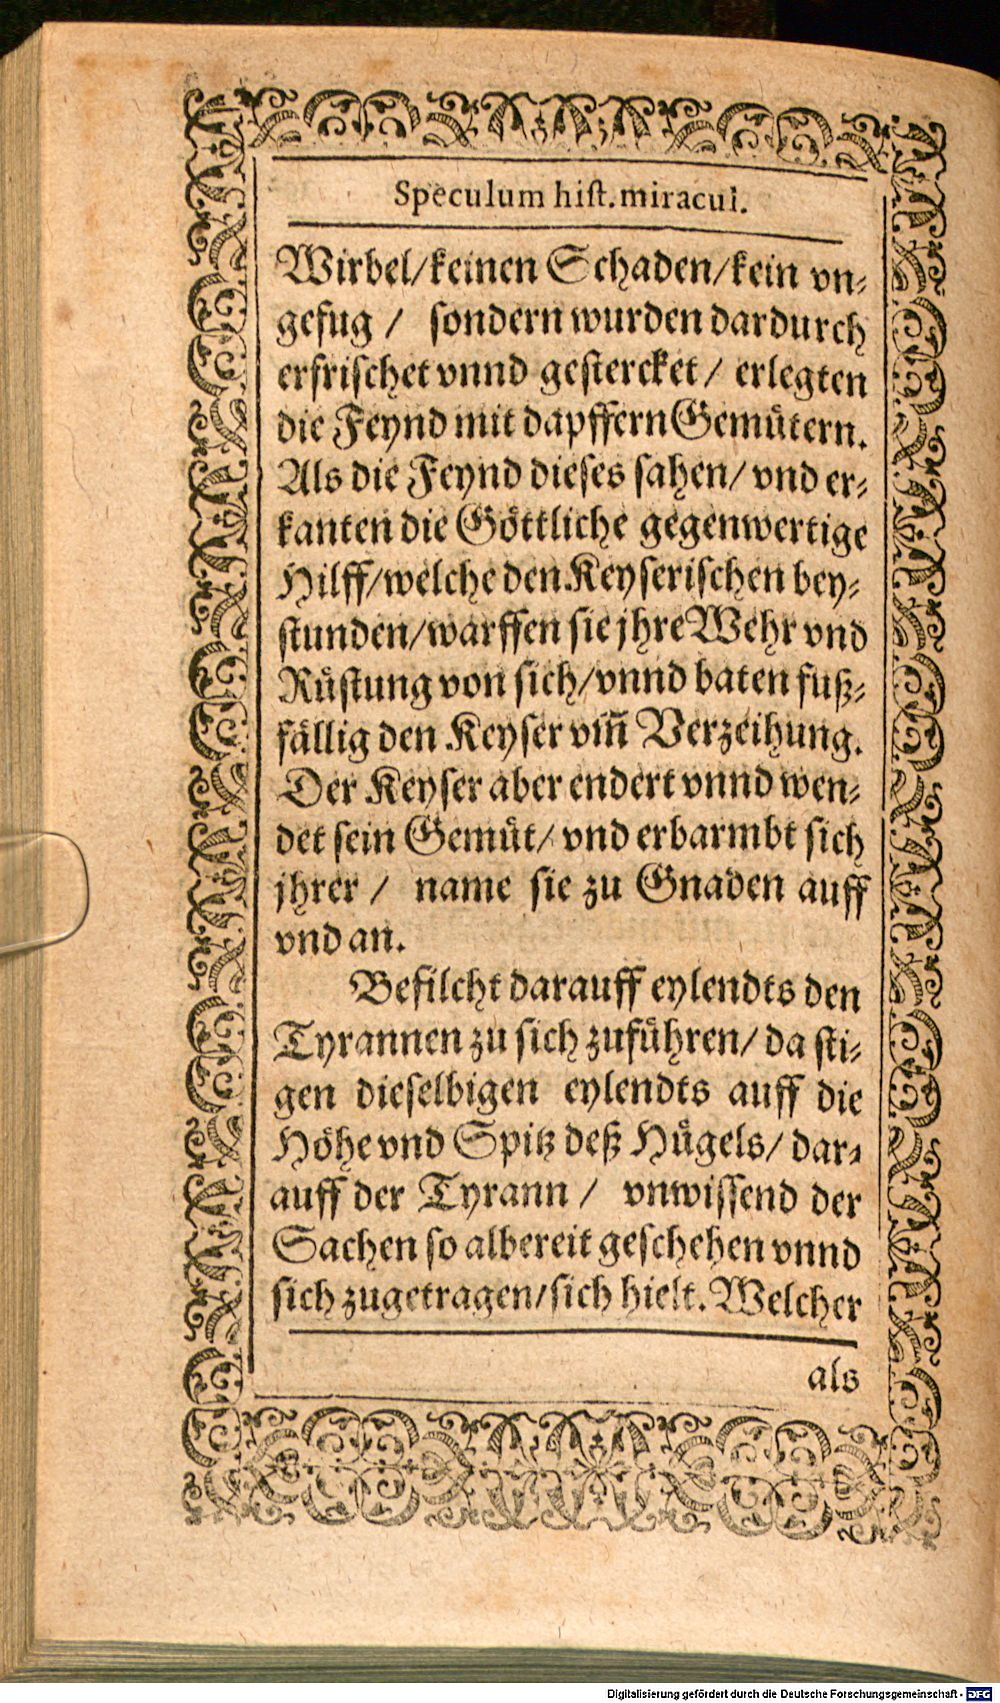 Speculum hiſt. miracul.
Wirbel/keinen Schaden/kein vn⸗
gefug / ſondern wurden dardurch
erfriſchet vnnd geſtercket / erlegten
die Feynd mit dapffern Gemütern.
Als die Feynd dieſes ſahen/ vnd er⸗
kanten die Göttliche gegenwertige
Hilff/welche den Keyſeriſchen bey⸗
ſtunden/warffen ſie jhre Wehr vnd
Rüſtung von ſich/vnnd baten fuß⸗
fällig den Keyſer vm̄ Verzeihung.
Der Keyſer aber endert vnnd wen⸗
det ſein Gemüt/ vnd erbarmbt ſich
jhrer / name ſie zu Gnaden auff
vnd an.
Befilcht darauff eylendts den
Tyrannen zu ſich zuführen/ da ſti⸗
gen dieſelbigen eylendts auff die
Höhe vnd Spitz deß Hügels/ dar⸗
auff der Tyrann / vnwiſſend der
Sachen ſo albereit geſchehen vnnd
ſich zugetragen/ſich hielt. Welcher
als
Digitalisierung gefördert durch die Deutsche Forschungsgemeinschaft - DFG